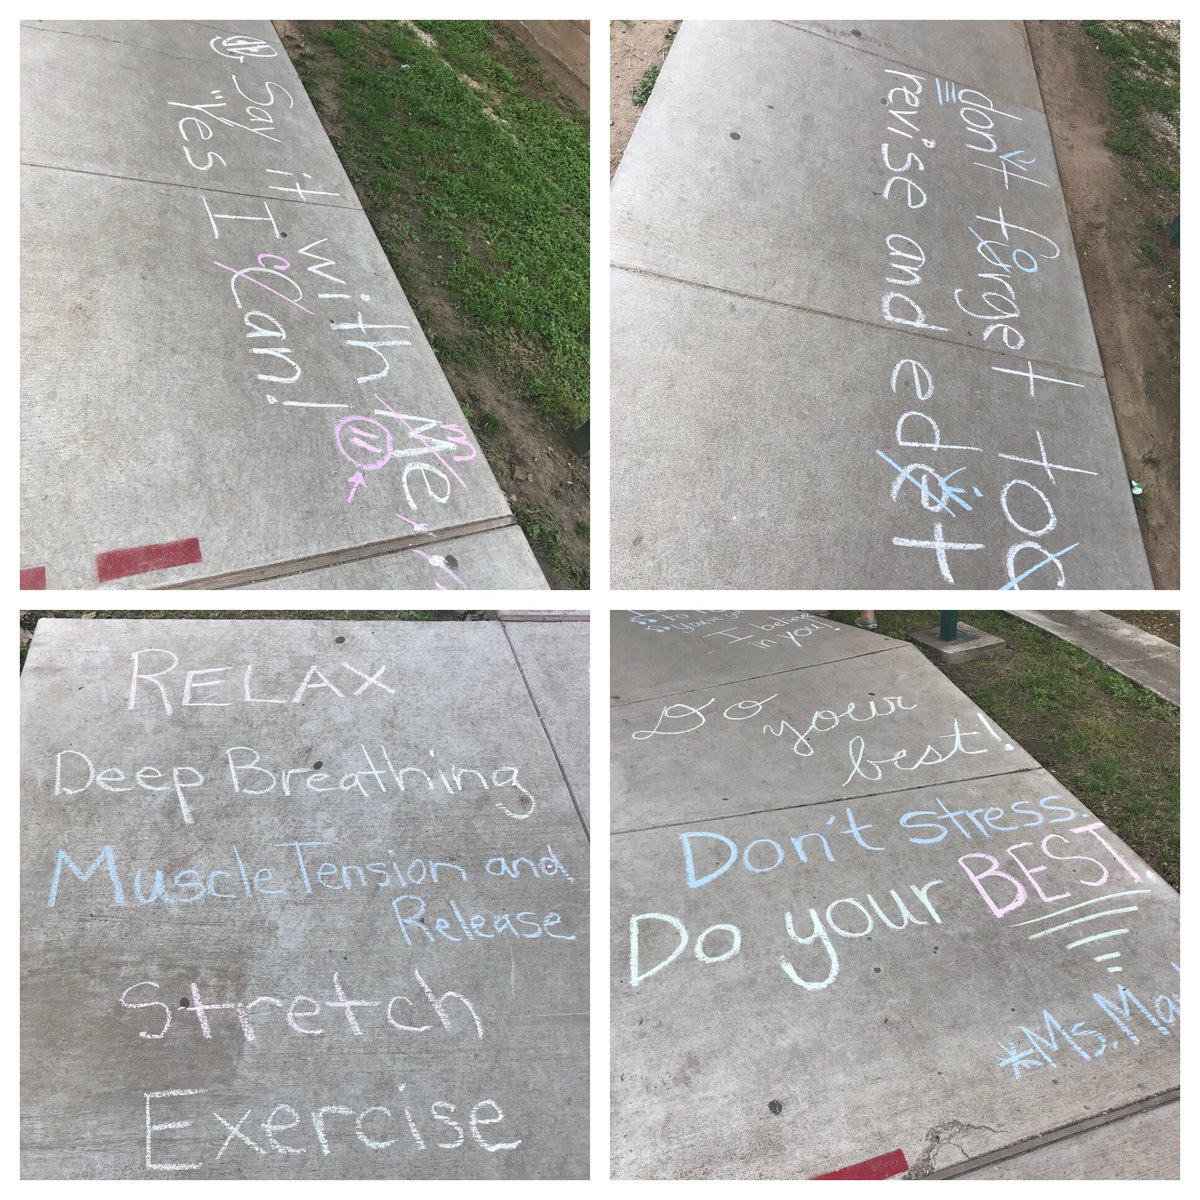 Say it with Me m...
"Yes I Can! c "
don't forget too
revise and edet i
RELAX
Deep Breathing
Muscle Tension and
Release
Stretch
Exercise
I believe
in you!
Do your
best!
Don't stress.
Do your BEST.
*Ms. Ma